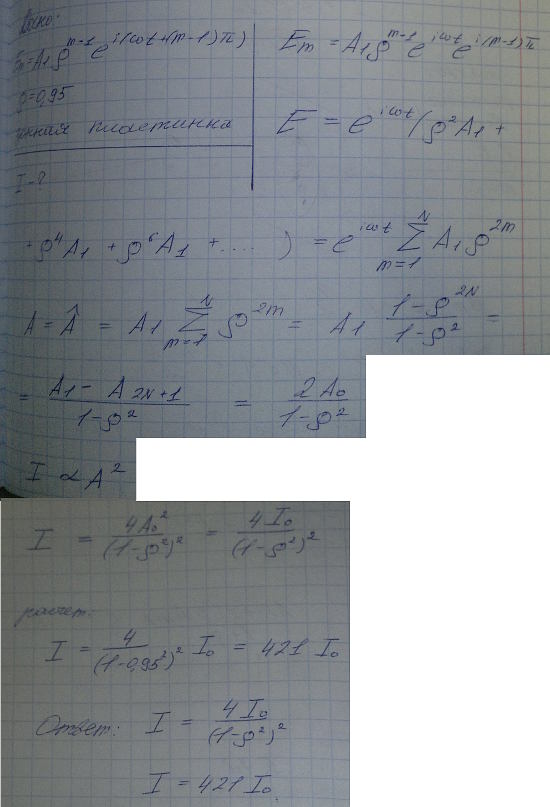 Дано:
E_m = A_1 ρ^{m-1} e^{i(ωt+(m-1)π)}
ρ=0,95
пластинка
I - ?
E_m = A_1 ρ^{m-1} e^{iωt} e^{i(m-1)π}
E = e^{iωt} (ρ^2 A_1 +
+ ρ^4 A_1 + ρ^6 A_1 + .... ) = e^{iωt} ∑_{m=1}^{N} A_1 ρ^{2m}
A = Â = A_1 ∑_{m=1}^{N} ρ^{2m} = A_1 \frac{1-ρ^{2N}}{1-ρ^2} =
= \frac{A_1 - A_{2N+1}}{1-ρ^2} = \frac{2A_0}{1-ρ^2}
I ∝ A^2
I = \frac{4A_0^2}{(1-ρ^2)^2} = \frac{4I_0}{(1-ρ^2)^2}
расчет:
I = \frac{4}{(1-0,95^2)^2} I_0 = 421 I_0
Ответ: I = \frac{4I_0}{(1-ρ^2)^2}
I = 421 I_0.